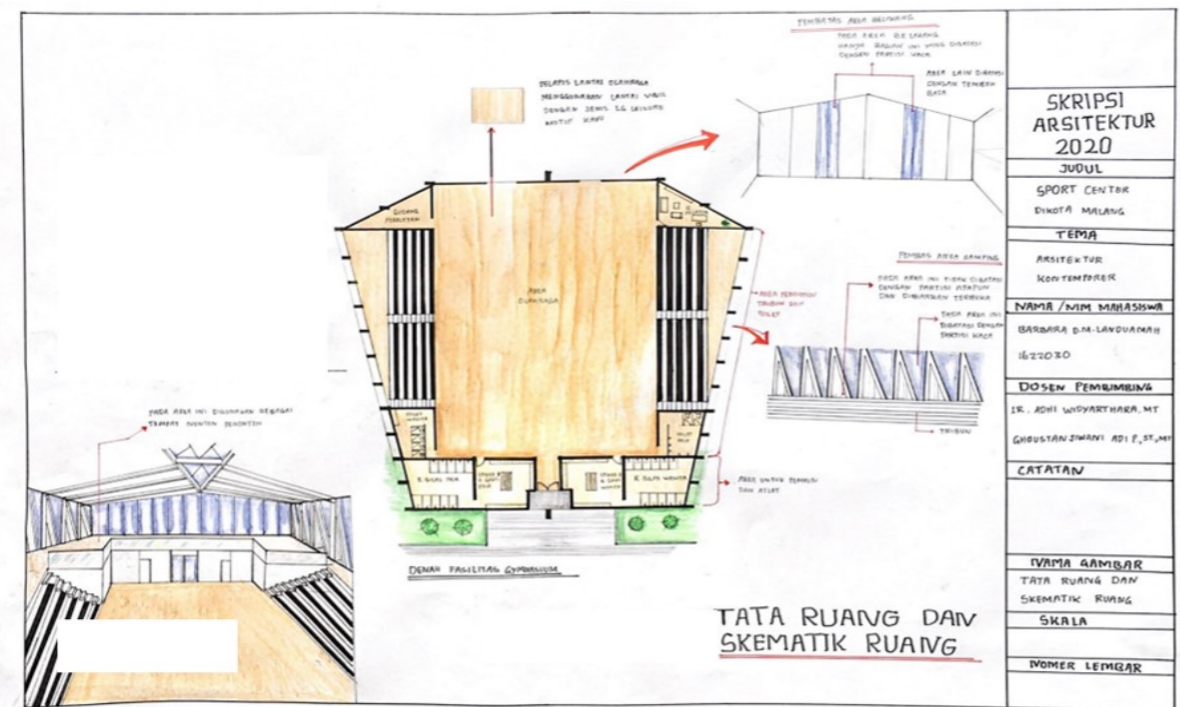 PEMBATAS AREA BELAKANG
PADA AREA BELAKANG
HANYA BAGIAN INI YANG DIBATASI
DENGAN PARTISI KACA
AREA LAIN DIBATASI
DENGAN TEMBOK
BATA
PELAPIS LANTAI OLAHRAGA
MENGGUNAKAN LANTAI VINYL
DENGAN JENIS LG
MOTIF KAYU
GUDANG
PERALATAN
AREA
OLAHRAGA
AREA PENONTON
TRIBUN DAN
TOILET
PEMBATAS AREA SAMPING
PADA AREA INI TIDAK DIBATASI
DENGAN PARTISI APAPUN
DAN DIBIARKAN TERBUKA
PADA AREA INI
DIBATASI DENGAN
PARTISI KACA
TRIBUN
TOILET
WANITA
TOILET
PRIA
R. BILAS PRIA
R. BILAS WANITA
AREA UNTUK PEMAIN
DAN ATLET
PADA AREA INI DIGUNAKAN SEBAGAI
TEMPAT NONTON PENONTON
DENAH FASILITAS GYMNASIUM
TATA RUANG DAN
SKEMATIK RUANG
SKRIPSI
ARSITEKTUR
2020
JUDUL
SPORT CENTER
DIKOTA MALANG
TEMA
ARSITEKTUR
KONTEMPORER
NAMA /NIM MAHASISWA
BARBARA D.M.LANDUAMAH
1622030
DOSEN PEMBIMBING
IR. ADHI WIDYARTHARA, MT
GHOUSTAN JIWANI ADI P., ST., MT
CATATAN
NAMA GAMBAR
TATA RUANG DAN
SKEMATIK RUANG
SKALA
NOMER LEMBAR